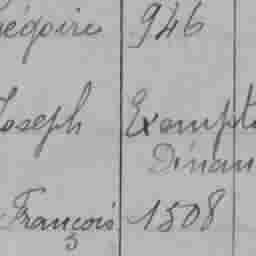 égoire 946
Joseph Exempt
Dinan
François 1508